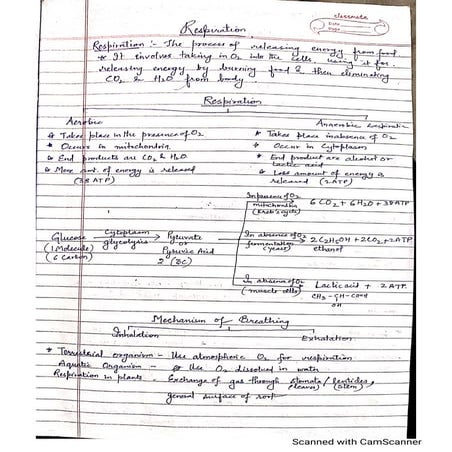 classmate
Date
Page
Respiration
Respiration :- The process of releasing energy from food.
* It involves taking in O2 into the cells, using it for
releasing energy by burning food & then eliminating
CO2 & H2O from body.
Respiration
Aerobic
Anaerobic Respiration
* Takes place in the presence of O2
* Takes place in absence of O2
* Occurs in mitochondria.
* Occur in Cytoplasm
* End products are CO2 & H2O
* End product are alcohol or
Lactic acid
* More amt. of energy is released
(38 ATP)
* Less amount of energy is
released (2 ATP)
In presence of O2
mitochondria
(Kreb's cycle)
6CO2 + 6H2O + 38 ATP
Glucose
(1 Molecule)
(6 Carbon)
Cytoplasm
glycolysis
Pyruvate
or
Pyruvic Acid
2 (3C)
In absence of O2
fermentation
(yeast)
2C2H5OH + 2CO2 + 2ATP
ethanol
In absence of O2
(muscle cells)
Lactic acid + 2ATP.
CH3-CH-COOH
OH
Mechanism of Breathing
Inhalation
Exhalation
* Terrestrial organism - Use atmospheric O2 for respiration
Aquatic Organism - Use O2 dissolved in water
Respiration in plants - Exchange of gas through stomata / lenticles,
(leaves) (stem)
general surface of root
Scanned with CamScanner